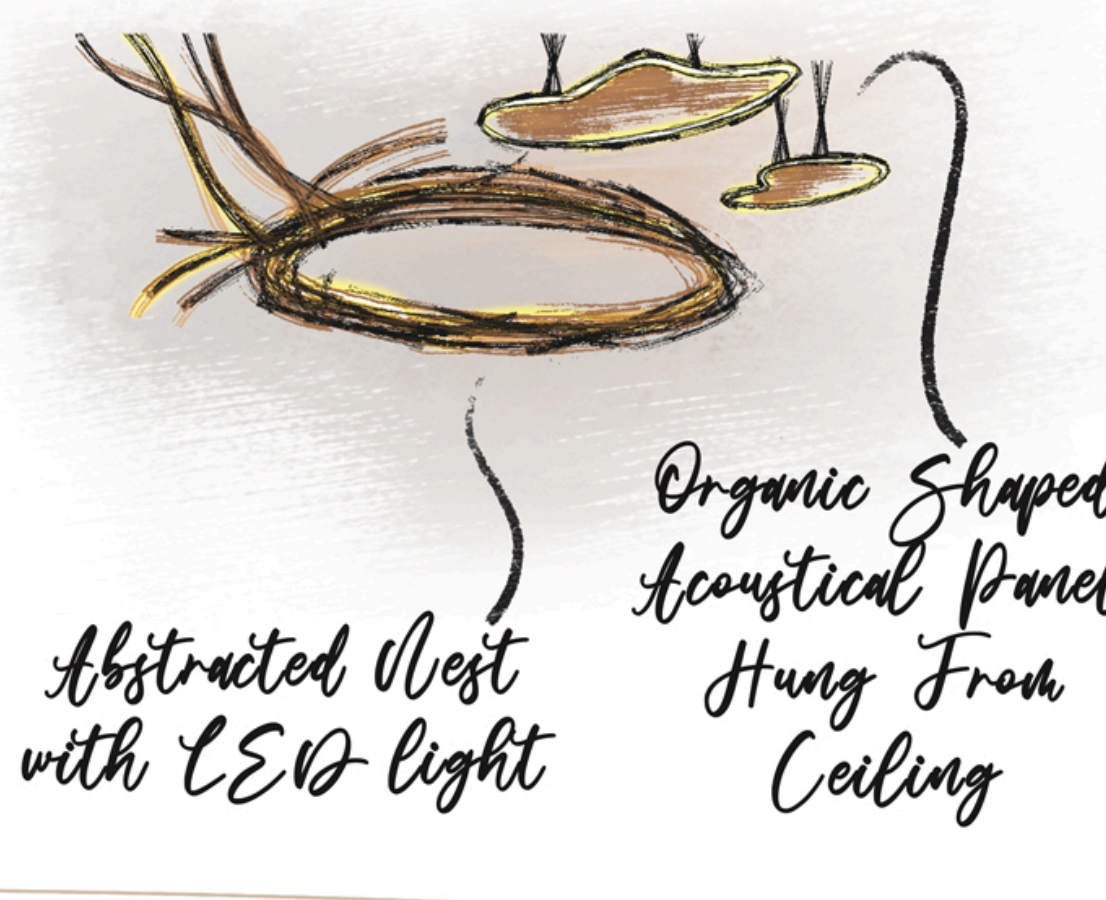 Abstracted Nest
with LED light
Organic Shaped
Acoustical Panel
Hung From
Ceiling